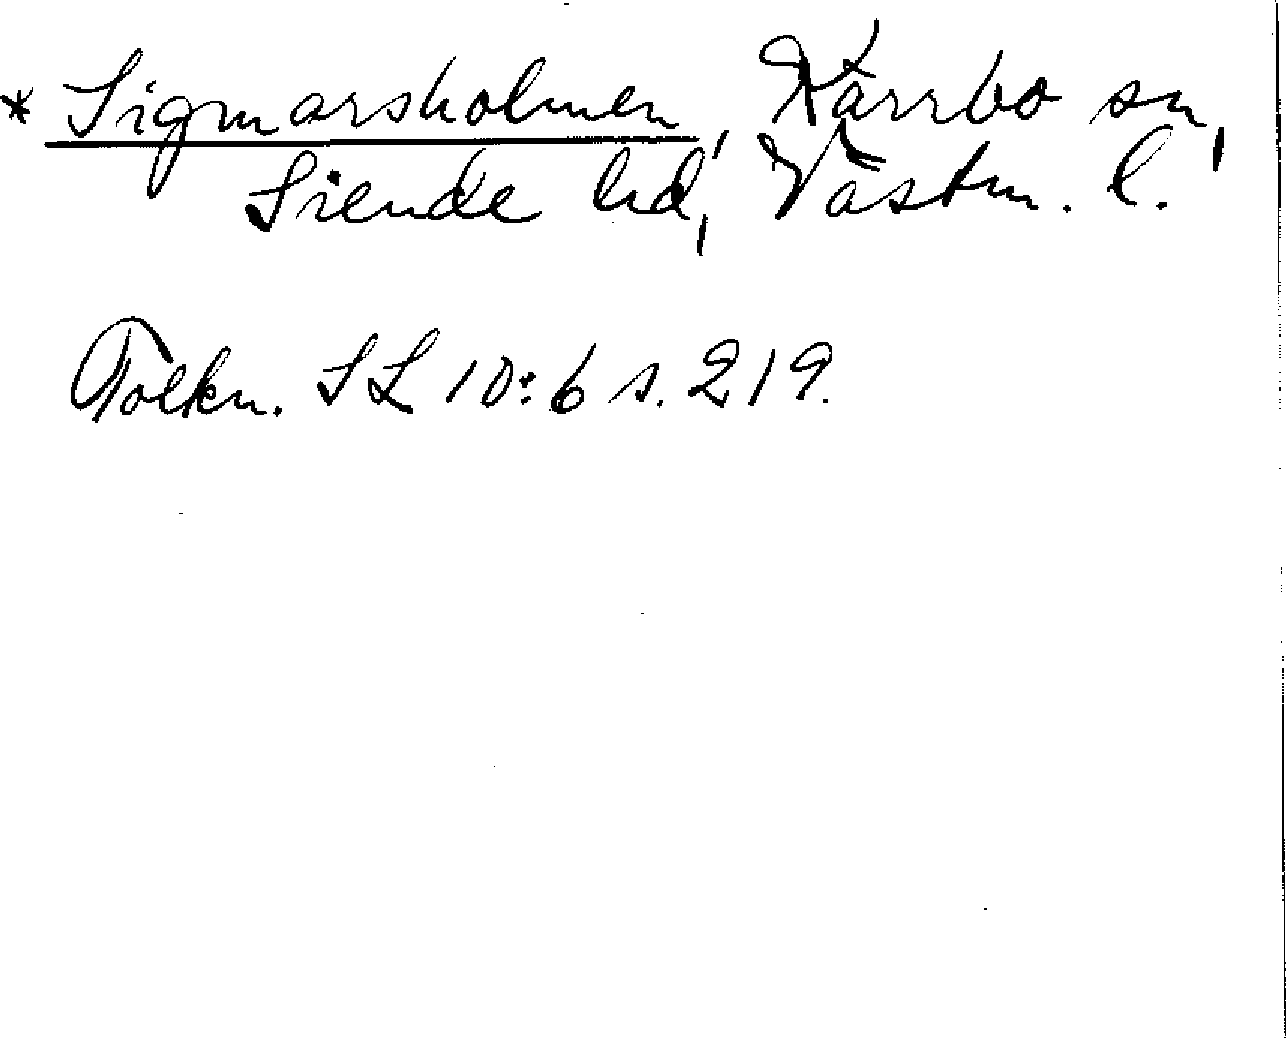 * Sigmarsholmen, Kärrbo sn,
Siende hd, Västm. l.
Tolkn. SL 10:6 s. 219.